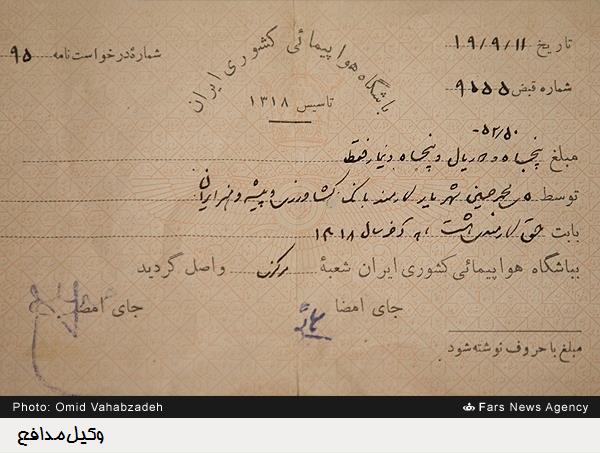 باشگاه هواپیمائی کشوری ایران
تاسیس ۱۳۱۸
تاریخ ۱۹/۹/۱۱
شماره درخواست نامه ۹۵
شماره قبض ۹۵۵۵
۵۲/۵۰
مبلغ پنجاه و دو ریال و پنجاه دینار فقط
توسط محمدحسین شهریار کارمند بانک کشاورزی و پیشه و هنر ایران
بابت حق کارمندی سال ۱۳۱۸
بباشگاه هواپیمائی کشوری ایران شعبهٔ مرکز واصل گردید
جای امضا جای امضا
مبلغ با حروف نوشته شود
Photo: Omid Vahabzadeh Fars News Agency
وکیل مدافع